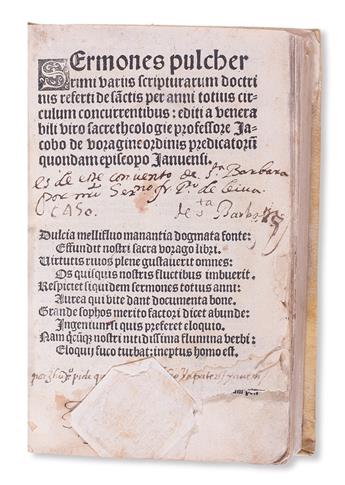 SErmones pulcher
rimi variis scripturarum doctri
nis referti de sãctis per anni totius cir
culum concurrentibus: editi a venera
bili viro sacre theologie professore Ja-
cobo de voragine ordinis predicatorũ
quondam episcopo Januensi.
es de este convento de sta Barbara
por
caso. de sta Barba
Dulcia mellifluo manantia dogmata fonte:
Effundit nostri sacra vorago libri.
Virtutis riuos plene gustauerit omnes:
Os quisquis nostris fluctibus imbuerit.
Respiciet siquidem sermones totius anni:
Aurea qui vite dant documenta bone.
Grande sophos merito factori dicet abunde:
Ingenium si quis preferet eloquio.
Nam q̃cũqz nostri nitidissima flumina verbi:
Eloquij fuco turbat: ineptus homo est.